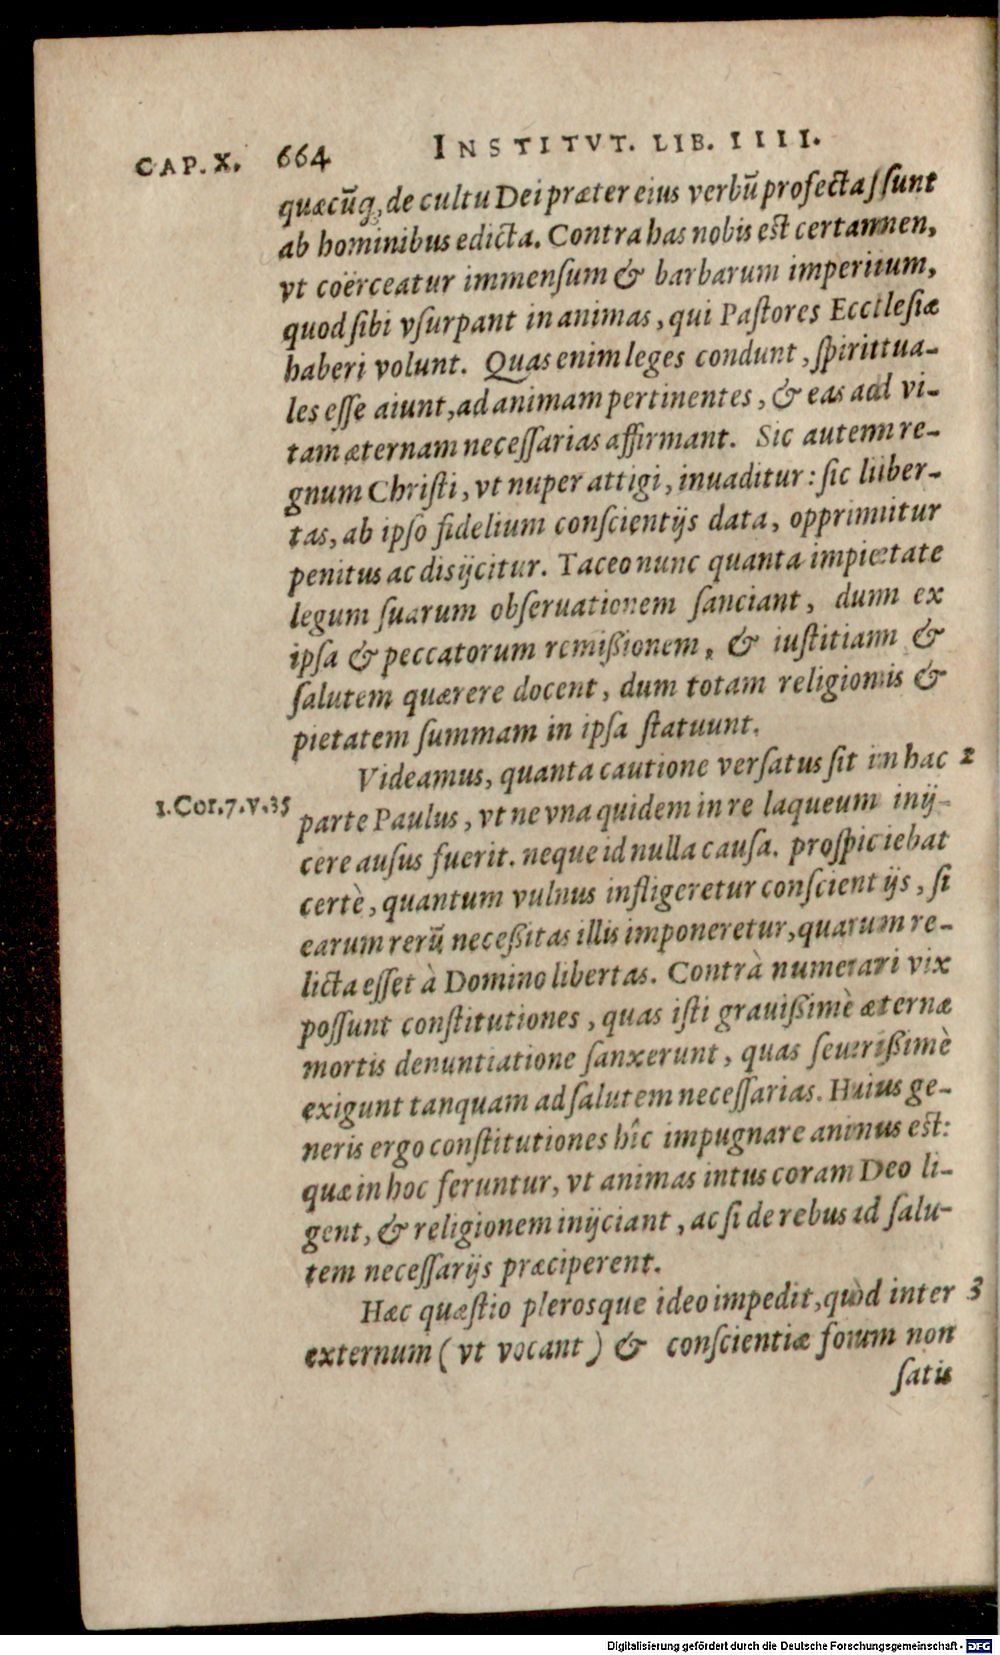 CAP. X. 664 INSTITVT. LIB. IIII.
quæcūq; de cultu Dei præter eius verbū profecta, sunt
ab hominibus edicta. Contra has nobis est certamen,
vt coërceatur immensum & barbarum imperium,
quod sibi vsurpant in animas, qui Pastores Ecclesiæ
haberi volunt. Quas enim leges condunt, spiritua-
les esse aiunt, ad animam pertinentes, & eas ad vi-
tam æternam necessarias affirmant. Sic autem re-
gnum Christi, vt nuper attigi, inuaditur: sic liber-
tas, ab ipso fidelium conscientijs data, opprimitur
penitus ac disijcitur. Taceo nunc quanta impietate
legum suarum obseruationem sanciant, dum ex
ipsa & peccatorum remißionem, & iustitiam &
salutem quærere docent, dum totam religionis &
pietatem summam in ipsa statuunt.
Videamus, quanta cautione versatus sit in hac 2
1. Cor. 7. v. 35
parte Paulus, vt ne vna quidem in re laqueum inij-
cere ausus fuerit. neque id nulla causa. prospiciebat
certè, quantum vulnus infligeretur conscientijs, si
earum rerū neceßitas illis imponeretur, quarum re-
licta esset à Domino libertas. Contrà numerari vix
possunt constitutiones, quas isti grauißimè æternæ
mortis denuntiatione sanxerunt, quas seuerißimè
exigunt tanquam ad salutem necessarias. Huius ge-
neris ergo constitutiones hîc impugnare animus est:
quæ in hoc feruntur, vt animas intus coram Deo li-
gent, & religionem inijciant, ac si de rebus ad salu-
tem necessarijs præciperent.
Hæc quæstio plerosque ideo impedit, quòd inter 3
externum (vt vocant) & conscientiæ forum non
satis
Digitalisierung gefördert durch die Deutsche Forschungsgemeinschaft - DFG